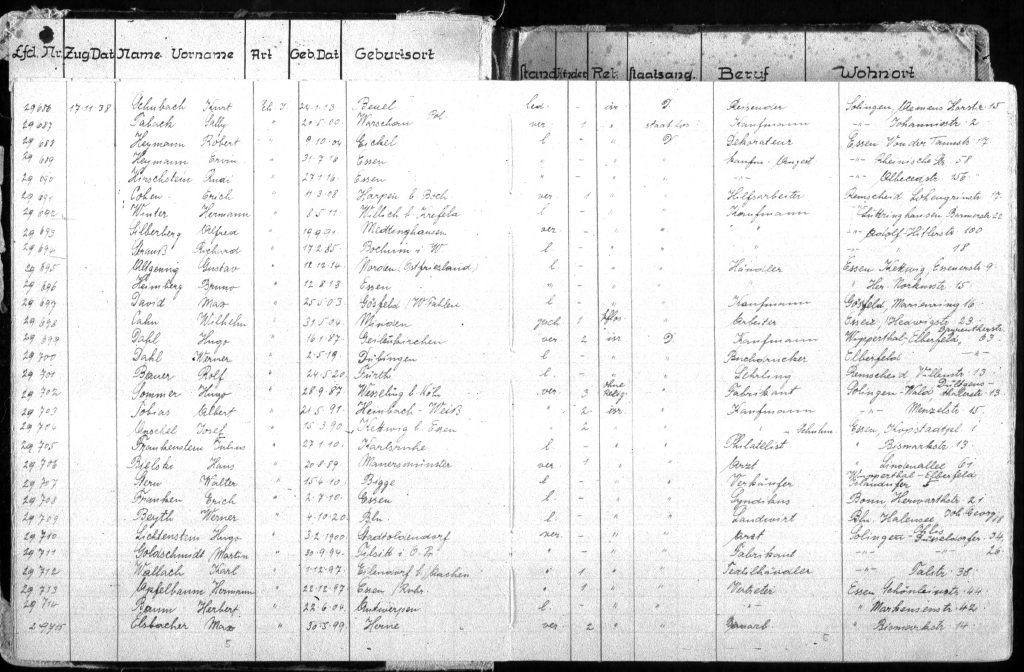 Lfd. Nr. Zug Dat Name Vorname Art Geb. Dat Geburtsort Stand Kinder Rel. Staatsang. Beruf Wohnort
29686 17.11.38 Schubach Kurt 24.1.13 Beuel led. - isr D Reisender Solingen, Klemens Horstr. 15
29687 Taback Sally " 20.5.00 Warschau Pol ver. 1 " staatlos Kaufmann -"- Johannisstr. 2
29688 Heymann Robert " 9.10.04 Eickel l - " D Dekorateur Essen Von der Tannstr. 17
29689 Heymann Erwin " 31.7.16 Essen " - " " Kaufm. Angest -"- Rheinische Str. 58
29690 Hirschstein Rudi " 27.1.16 Essen " - " " " -"- 156
29691 Cohen Erich " 11.3.08 Harpen b. Boch ver. 1 " " Hilfsarbeiter Remscheid Lohengrinstr. 17
29692 Winter Hermann " 8.5.11 Willich b. Krefeld l - " " Kaufmann -"- Lüttringhausen Barmerstr. 22
29693 Silberberg Alfred " 19.9.91 ver. - " " " -"- Adolf-Hitlerstr. 100
29694 Strauß Richard " 17.2.85 Bochum i. W " " " 18
29695 Gustav " 12.12.14 Norden (Ostfriesland) l - " " Händler Essen Kettwig, Essenerstr. 9
29696 Heimberg Bruno " 12.8.13 Essen " - " " " " Her. 15
29697 David Max " 25.5.03 Gösfeld / Westfalen l - " " Kaufmann Gösfeld, Marienring 16
29698 Cahn Wilhelm " 31.5.04 Minden gesch 1 " Arbeiter Essen, Hedwigstr. 23
29699 Dahl Hugo " 16.1.87 Geilenkirchen ver. 2 isr D Kaufmann Wupperthal-Elberfeld, Bayreutherstr. 63
29700 Dahl Werner " 2.5.19 l - " " Buchdrucker Elberfeld -"-
29701 Bauer Rolf " 24.5.20 Fürth l - " " Lehrling Remscheid Villenstr. 13
29702 Sommer Hugo " 28.9.87 Wesseling b. Köln ver. 3 ohne Relig. " Fabrikant Solingen-Wald 13
29703 Tobias Albert " 21.5.91 Heimbach-Weiß " 2 isr. " Kaufmann -"- Menzelstr. 15
29704 Josef " 15.3.90 Kettwig b. Essen " 2 " " " Essen, 1
29705 Frankenstein Julius " 27.1.10 Karlsruhe l - " " Philatelist " Bismarkstr. 13
29706 Bielski Hans " 20.8.89 Maursmünster ver. 1 " " Arzt " Lindenallee 61
29707 Stern Walter " 15.4.10 Bigge l - " " Verkäufer Wupperthal-Elberfeld 5
29708 Franken Erich " 2.7.10 Essen l - " " Syndikus Bonn, Herwarthstr. 21
29709 Beyth Werner " 4.10.20 Bln. l. - " " Landwirt Bln. Halensee, Joh. Georg 18
29710 Lichtenstein Hugo " 3.2.1900 Stadtoldendorf ver. - " " Arzt Solingen-Ohlis Düsseldorfer 34
29711 Goldschmidt Martin " 30.9.94 Tilsit i. O. Pr. " - " " Fabrikant -"- 26
29712 Wallach Karl " 1.12.97 Eilendorf b. Aachen " 1 " " Textilhändler -"- Talstr. 38
29713 Apfelbaum Hermann " 22.12.97 Essen / Ruhr " 1 " " Vertreter Essen Schönleinstr. 44
29714 Baum Herbert " 22.6.04 Antwerpen l. - " " -"- " 42
29715 Elsbacher Max " 30.5.99 Herne ver. 2 " " " Bismarkstr. 14